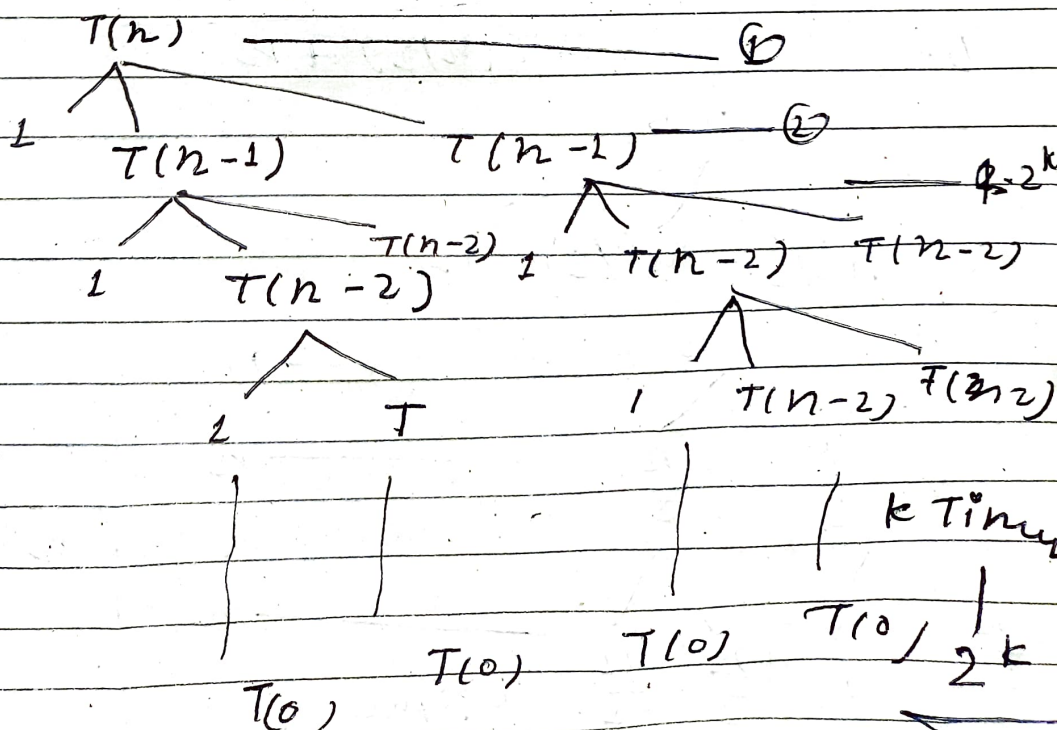 T(n) ①
1 T(n-1) T(n-1) ②
2^k
1 T(n-2) T(n-2) 1 T(n-2) T(n-2)
1 T 1 T(n-2)
k
T(0) T(0) T(0) T(0) 2^k